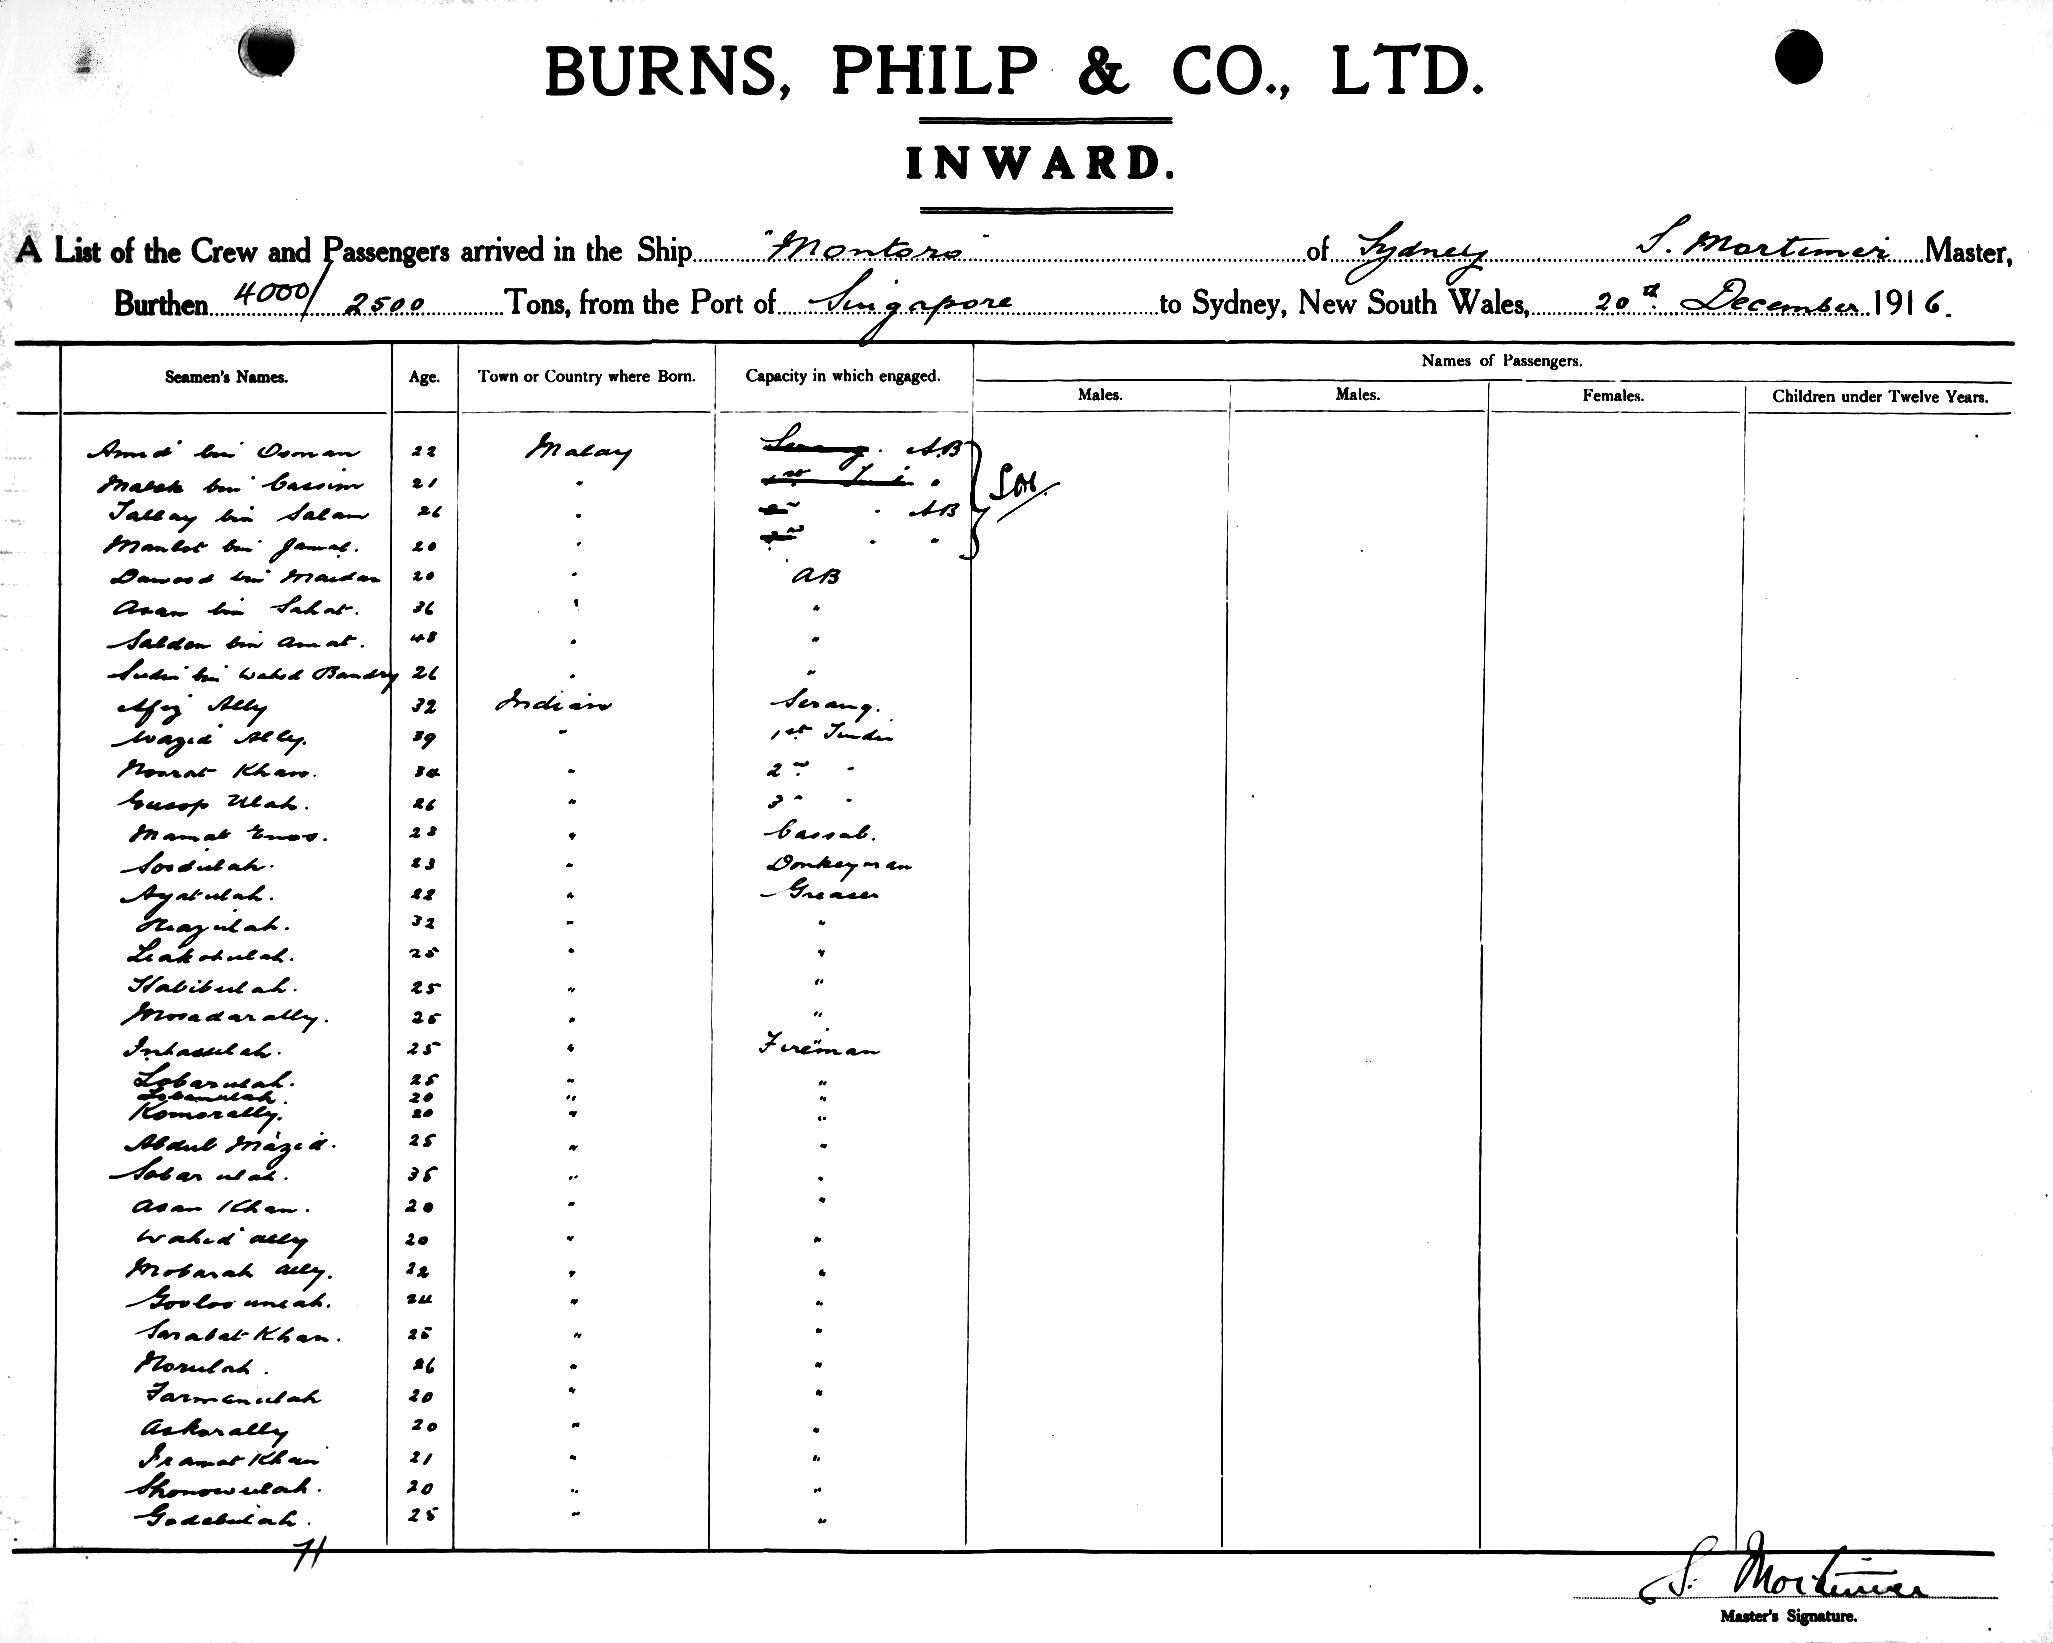 BURNS, PHILP & CO., LTD.
INWARD.
A List of the Crew and Passengers arrived in the Ship "Montoro" of Sydney S. Mortimer Master,
Burthen 4000/2500 Tons, from the Port of Singapore to Sydney, New South Wales, 20th December 1916.
Names of Passengers.
Seamen's Names. Age. Town or Country where Born. Capacity in which engaged. Males. Males. Females. Children under Twelve Years.
bin Osman 22 Malay Serang. AB
bin Cassim 21 " 1st "
Tallay bin Salam 26 " " AB
bin Jamal. 20 " " "
Dawood bin Maidan 20 " AB
Asan bin Sahat. 36 " "
Salden bin Amat. 48 " "
bin Wahid 26 " "
Afiz Ally 32 Indian Serang.
Wazid Ally. 39 " 1st Tindei
Nosrat Khan. 34 " 2nd "
Eusop Ulah. 26 " 3rd "
Mamat Enos. 23 " Cassab.
Sosdulah. 23 " Donkeyman
Ayatulah. 22 " Greaser
Reazulah. 32 " "
Leakotulah. 25 " "
Habibulah. 25 " "
Mosadarally. 25 " "
25 " Fireman
Lobarulah. 25 " "
20 " "
Komorally. 20 " "
Abdul Mazid. 25 " "
Sobarulah. 35 " "
Asan Khan. 20 " "
Wahid Ally 20 " "
Mobarah Ally. 22 " "
24 " "
Sarabat Khan. 25 " "
Norulah. 26 " "
Farmanulah 20 " "
Askorally 20 " "
Iramat Khan 21 " "
Shonowulah. 20 " "
Godabulah. 25 " "
71
S. Mortimer
Master's Signature.